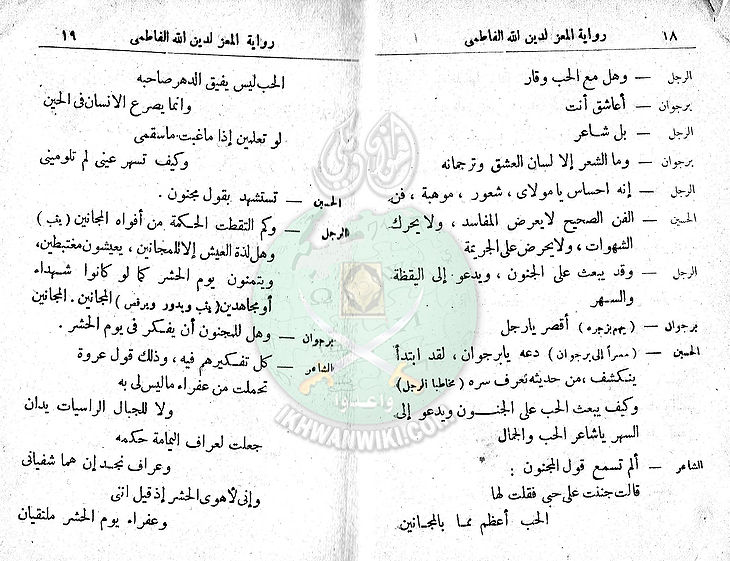 ١٨ رواية المعز لدين الله الفاطمى
الرجل — وهل مع الحب وقار
برجوان — أعاشق أنت
الرجل — بل شاعر
برجوان — وما الشعر إلا لسان العشق وترجمانه
الرجل — إنه احساس يا مولاى ، شعور ، موهبة ، فن
الحسين — الفن الصحيح لا يعرض المفاسد ، ولا يحرك
الشهوات ، ولا يحرض على الجريمة
الرجل — وقد يبعث على الجنون ، ويدعو إلى اليقظة
والسهر
برجوان — (يهم بزجره) أقصر يارجل
الحسين — (مسراً الى برجوان) دعه يابرجوان ، لقد ابتدأ
ينكشف ، من حديثه تعرف سره (مخاطبا الرجل)
وكيف يبعث الحب على الجنون ويدعو إلى
السهر ياشاعر الحب والجمال
الشاعر — ألم تسمع قول المجنون :
قالت جننت على حبى فقلت لها
الحب أعظم مما بالمجانين
رواية المعز لدين الله الفاطمى ١٩
الحب ليس يفيق الدهر صاحبه
وانما يصرع الانسان فى الحين
لو تعلمين إذا ماغبت ماسقمى
وكيف تسهر عينى لم تلومينى
الحسين — تستشهد بقول مجنون .
الرجل — وكم التقطت الحكمة من أفواه المجانين (يثب)
وهل لذة العيش إلا للمجانين ، يعيشون مغتبطين،
ويتمنون يوم الحشر كما لو كانوا شهداء
أو مجاهدين (يثب ويدور ويرقص) المجانين . المجانين
برجوان — وهل للمجنون أن يفكر فى يوم الحشر .
الشاعر — كل تفكيرهم فيه ، وذلك قول عروة
تحملت من عفراء ماليس لى به
ولا للجبال الراسيات يدان
جعلت لعراف اليمامة حكمه
وعراف نجد إن هما شفيانى
وإنى لأهوى الحشر إذ قيل اننى
وعفراء يوم الحشر ملتقيان
وأعدوا
IKHWANWIKI.COM